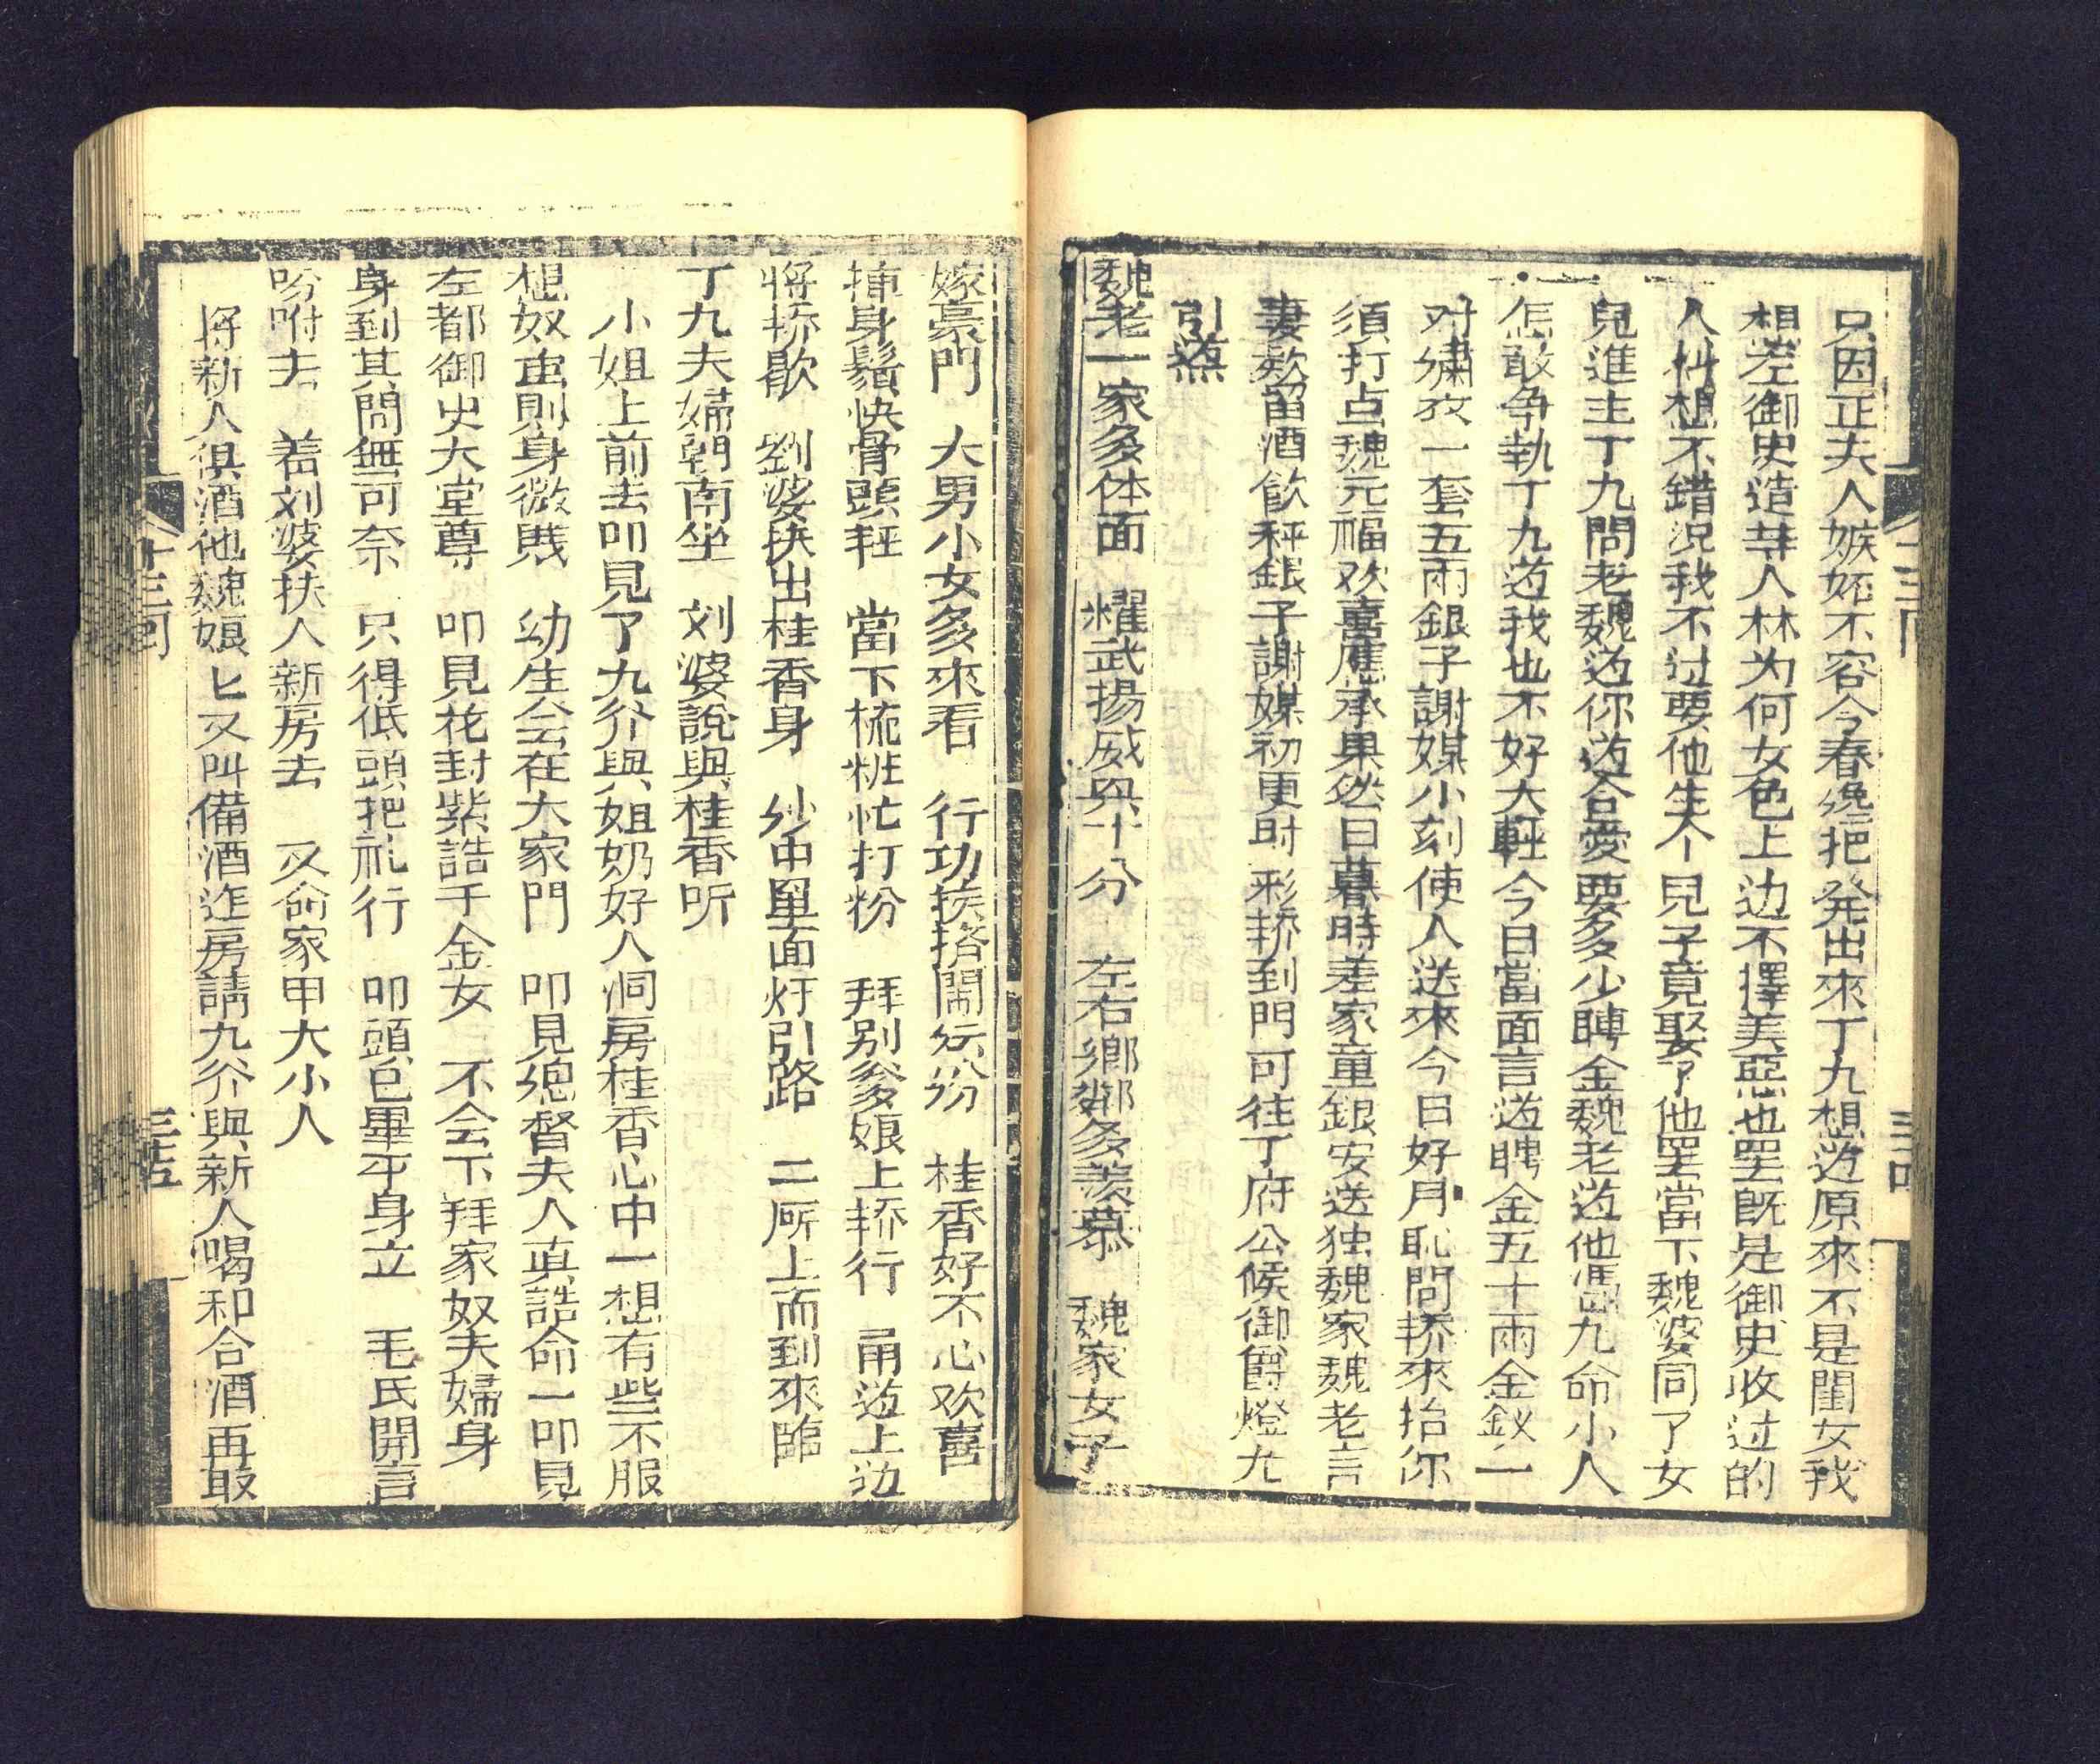 只因正夫人嫉妬不容今春纔把発出來丁九想道原來不是閨女我
想左御史造等人林为何女色上边不擇美惡也罢既是御史收过的
人料想不錯况我不过要他生个兒子竟娶了他罢當下魏婆同了女
兒進主丁九問老魏道你道合愛要多少聘金魏老道他馮九命小人
怎敢争執丁九道我也不好大軽今日當面言道聘金五十兩金釵一
对繡衣一套五兩銀子謝媒小刻使人送來今日好月恥問轿來抬你
須打点魏元福欢喜應承果然日暮時差家童銀安送独魏家魏老言
妻欵留酒飲秤銀子謝媒初更时彩轿到門可往丁府公候御爵燈九
引燕
魏老一家多体面 耀武揚威與十分 左右鄉鄰多羡慕 魏家女子
嫁豪門 大男小女多來看 行功挨擠鬧紜紛 桂香好不心欢喜
揷身鬚快骨頭軽 當下梳粧忙打粉 拜别爹娘上轿行 甬道上边
将轿歇 劉婆扶出桂香身 纱巾單面灯引路 二所上而到來臨
丁九夫婦朝南坐 刘婆說與桂香听
小姐上前去叩見了九爷與姐奶好人洞房桂香心中一想有些不服
想奴重則身微賎 幼生公在大家門 叩見總督夫人真誥命一叩見
左都御史大堂尊 叩見花封紫誥千金女 不会下拜家奴夫婦身
身到其間無可奈 只得低頭把礼行 叩頭已畢平身立 毛氏開言
吩咐去 着刘婆扶人新房去 又俞家甲大小人
将新人俱酒他魏娘匕又叫備酒迮房請九爷與新人喝和合酒再取
十三回
三五
十三回
三四